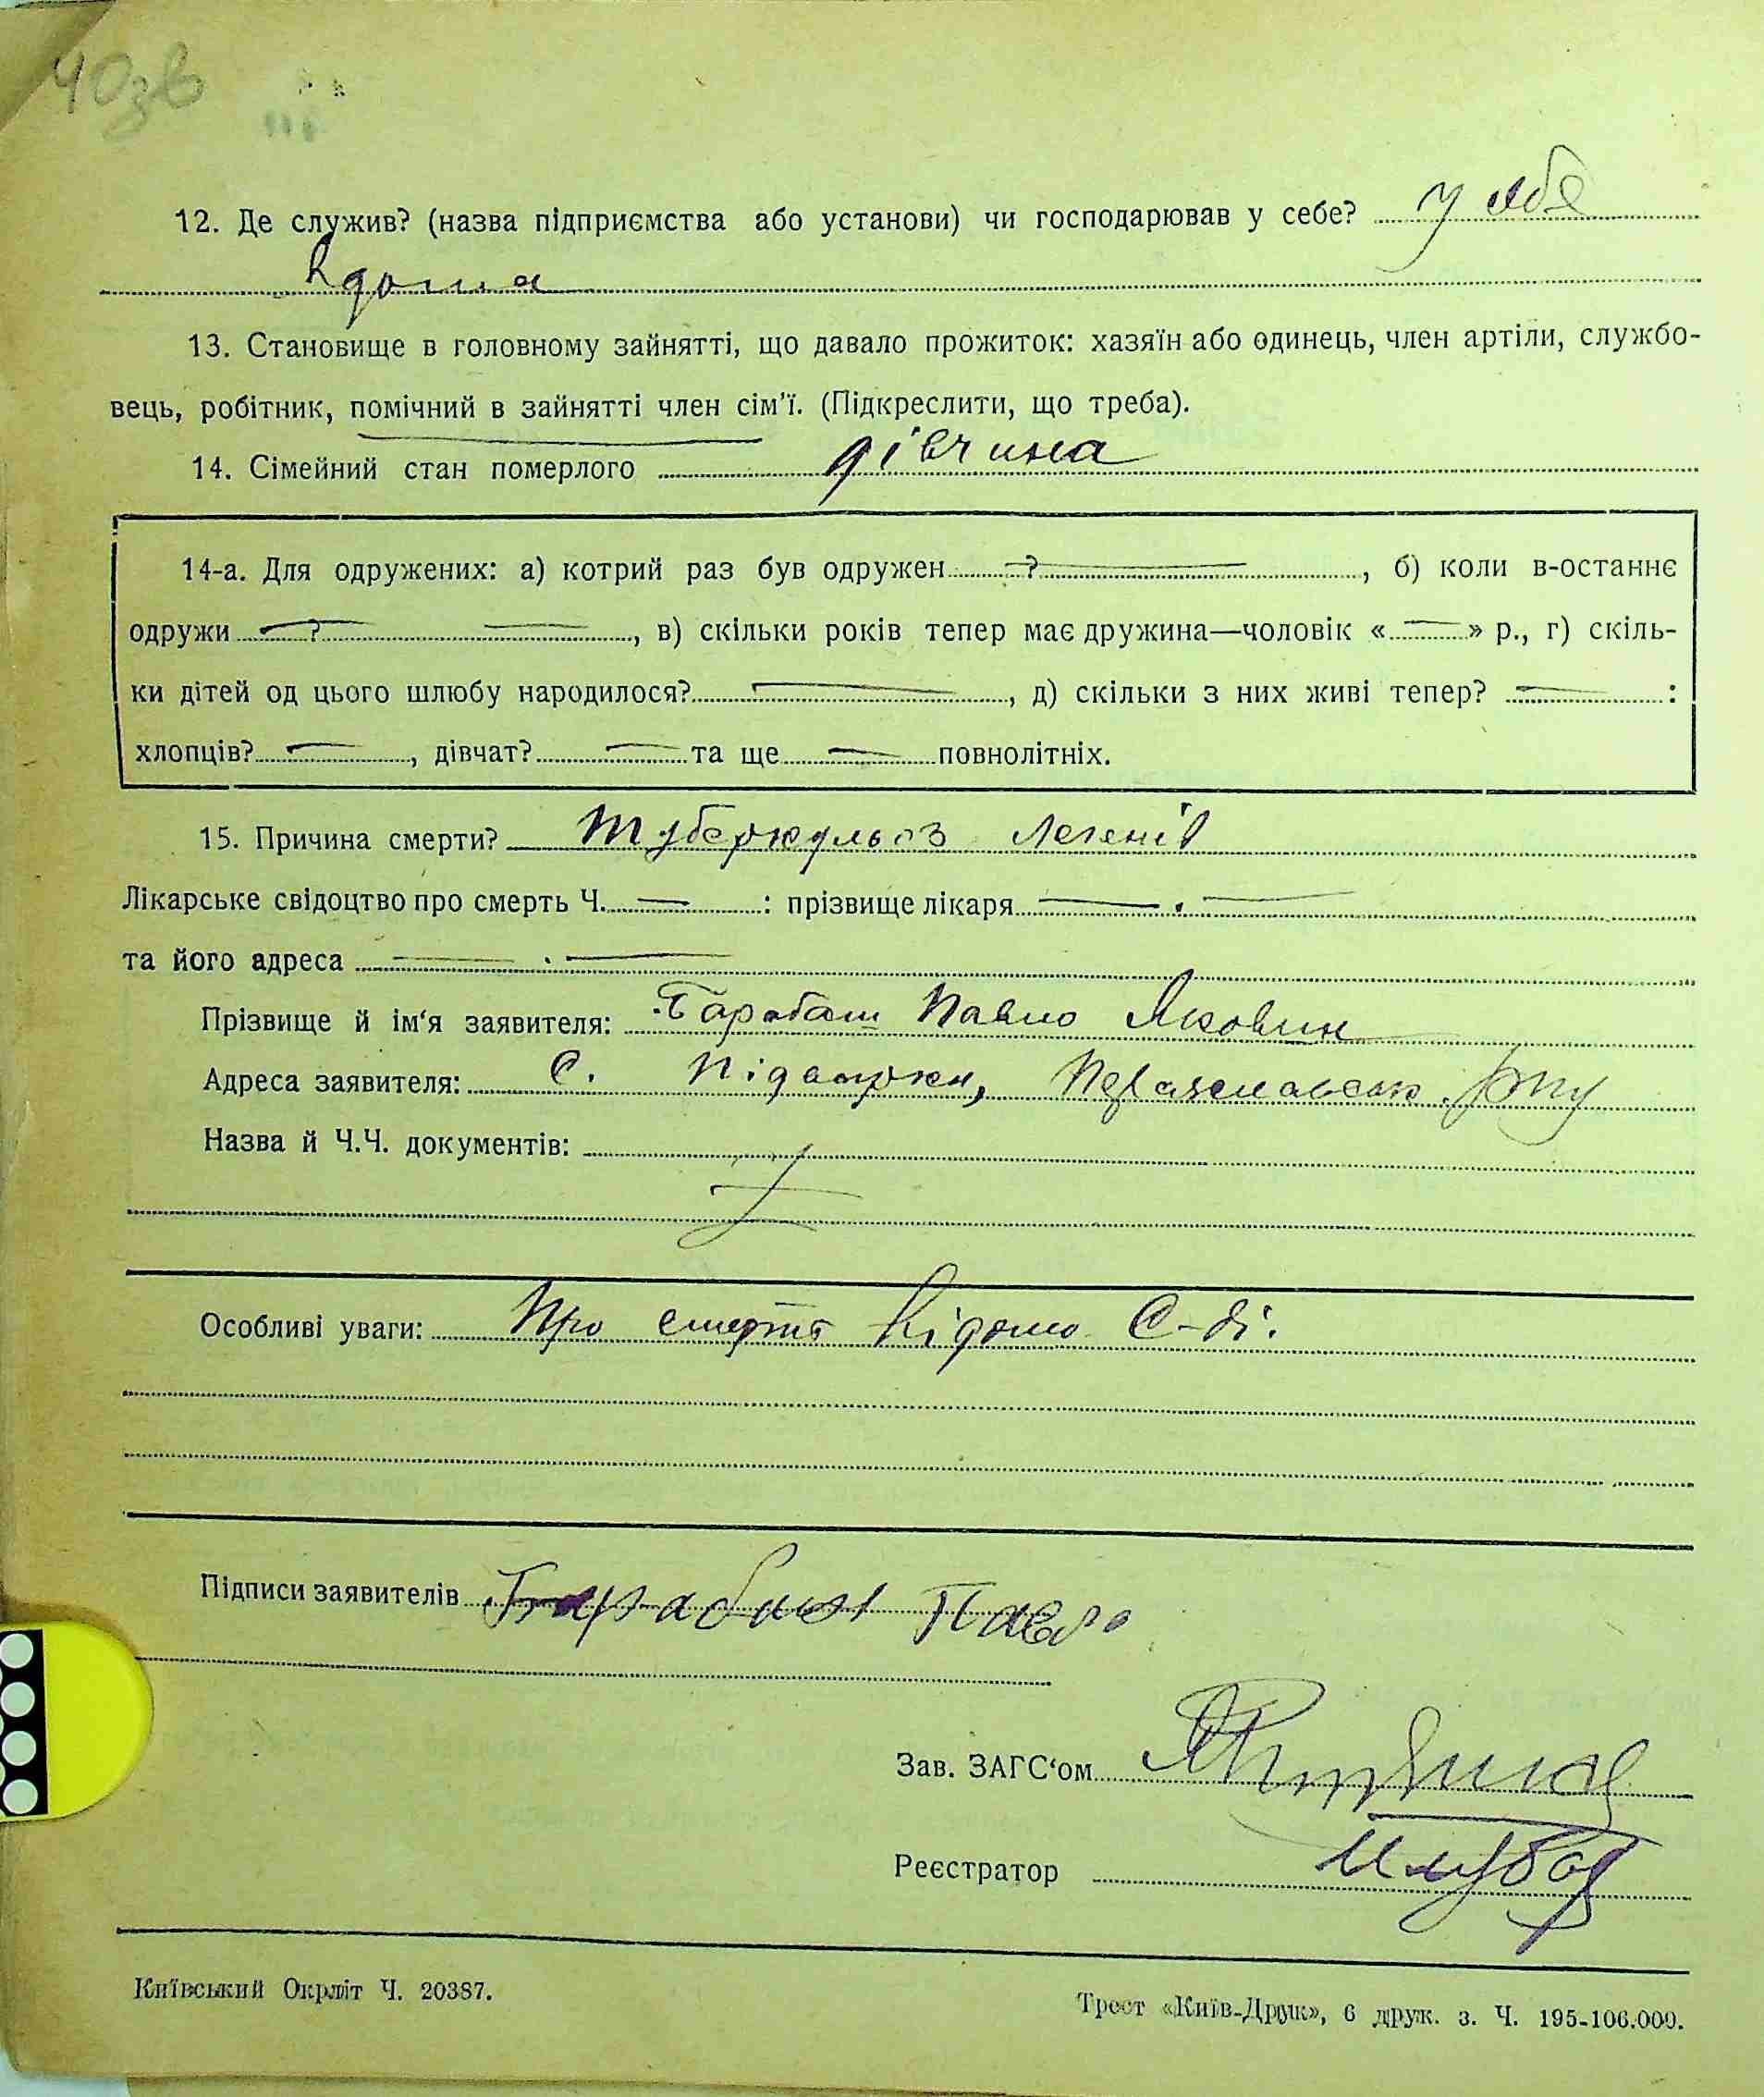 40зв
12. Де служив? (назва підприємства або установи) чи господарював у себе? у себе
вдома
13. Становище в головному зайнятті, що давало прожиток: хазяїн або одинець, член артіли, службо-
вець, робітник, помічний в зайнятті член сім'ї. (Підкреслити, що треба).
14. Сімейний стан померлого дівчина
14-а. Для одружених: а) котрий раз був одружен —?—, б) коли в-останнє
одружи —?— —, в) скільки років тепер має дружина—чоловік «—» р., г) скіль-
ки дітей од цього шлюбу народилося? —, д) скільки з них живі тепер? —:
хлопців? —, дівчат? — та ще — повнолітніх.
15. Причина смерти? туберкульоз легенів
Лікарське свідоцтво про смерть Ч. —: прізвище лікаря — . —
та його адреса — . —
Прізвище й ім'я заявителя: Барабаш Павло Якович
Адреса заявителя: с. Підварки, Переяславськ. р-ну
Назва й Ч.Ч. документів:
Особливі уваги: Про смерть відомо С-ді.
Підписи заявителів Барабаш Павло
Зав. ЗАГС'ом
Реєстратор
Київський Окрліт Ч. 20387.
Трест «Київ-Друк», 6 друк. з. Ч. 195-106.000.